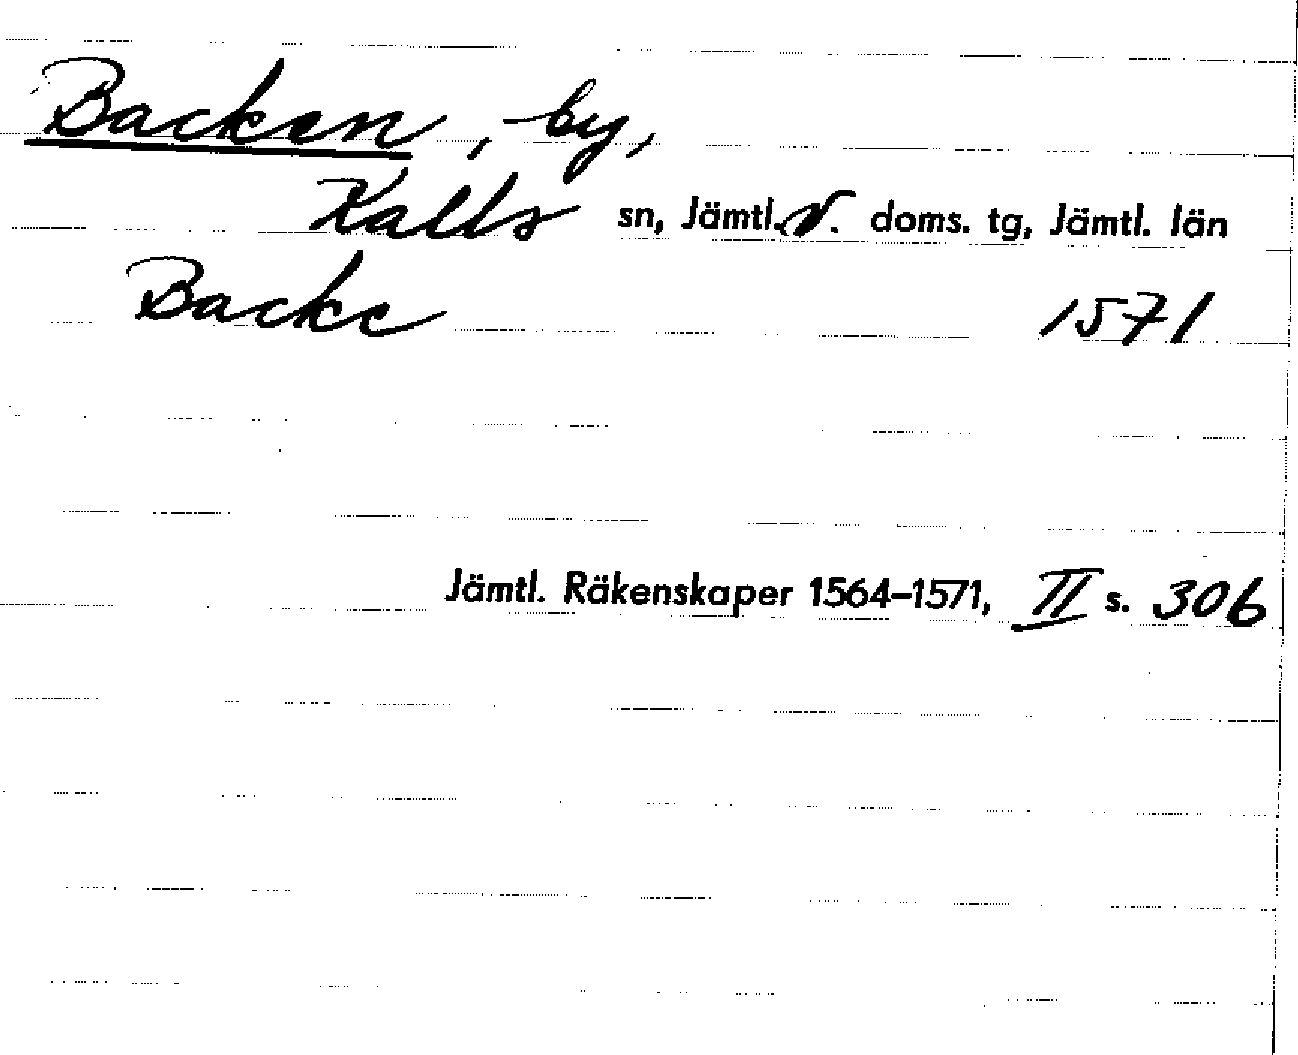 Backen, by,
Kalls sn, Jämtl. v. doms. tg, Jämtl. län
Backe 1571
Jämtl. Räkenskaper 1564–1571, II s. 306